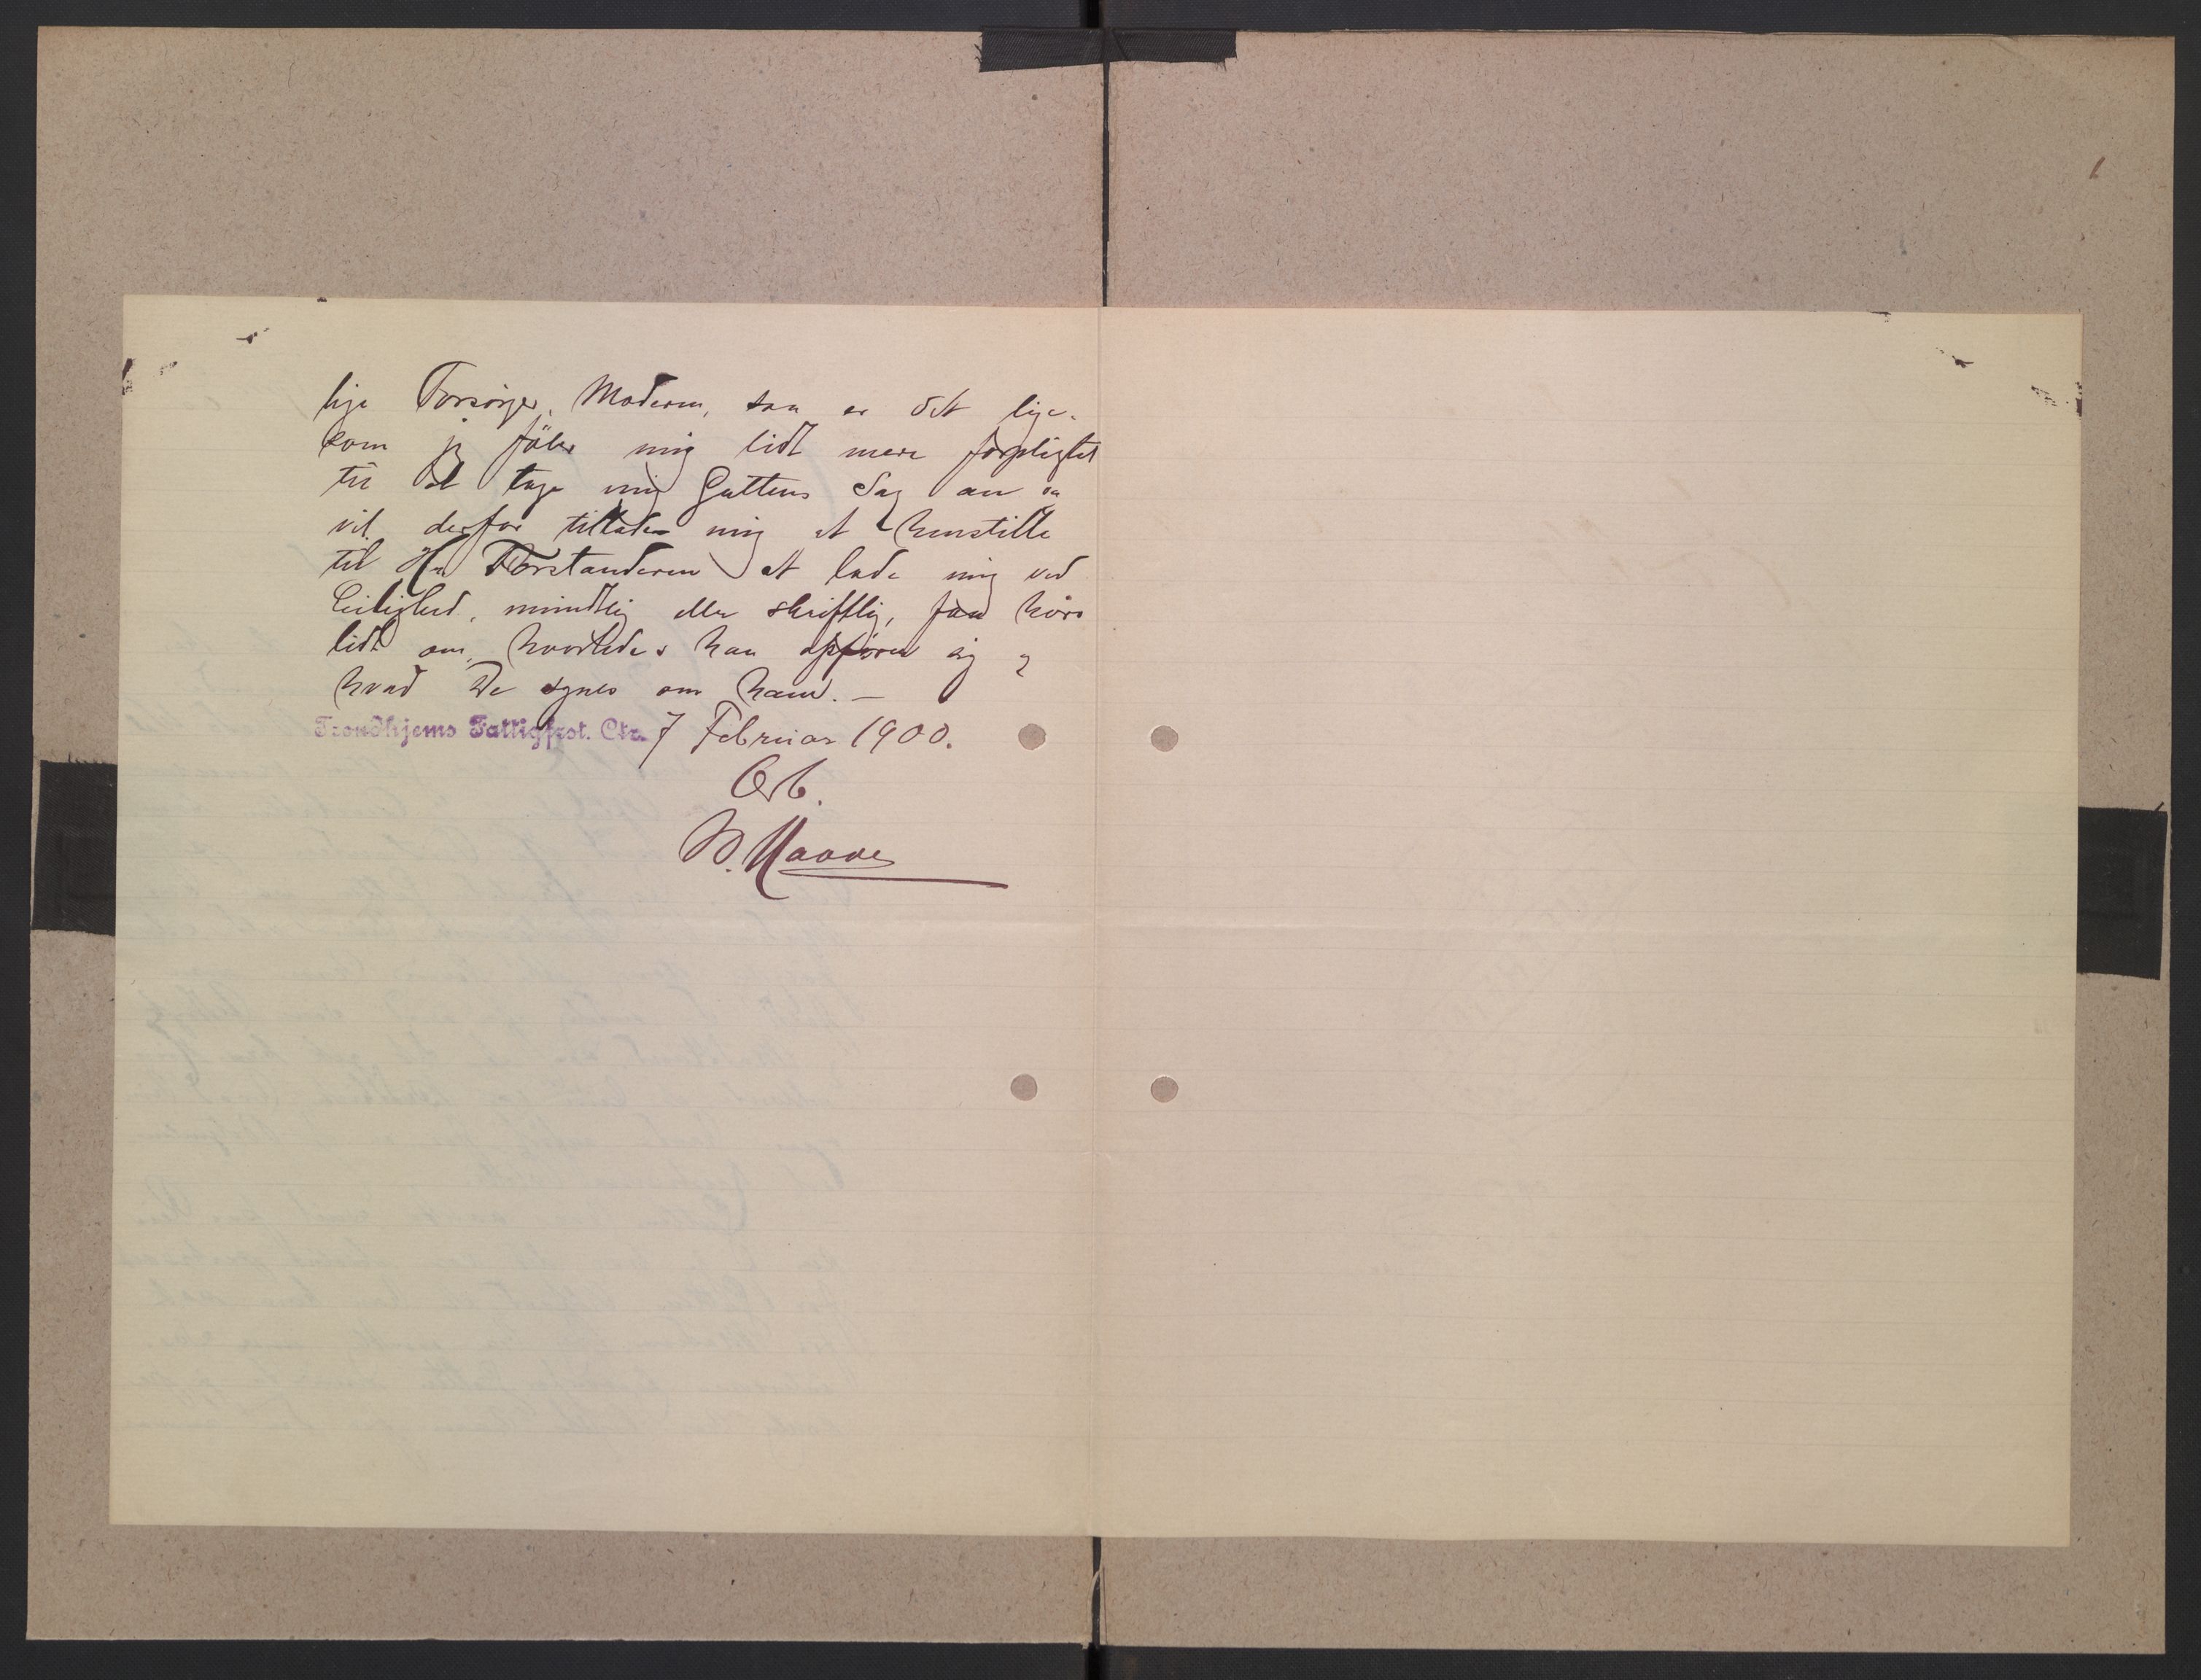 lige Forsørger, Moderen, saa er det lige-
som jeg føler mig lidt mere forpligtet
til at tage mig Guttens Sag an og
vil derfor tillade mig at henstille
til Hr. Forstanderen at lade mig ved
Leilighed, mundtlig eller skriftlig, faa høre
lidt om, hvorledes han opfører sig og
hvad De synes om ham. —
Trondhjems Fattigfrst. Ctr. 7 Februar 1900.
Erb.